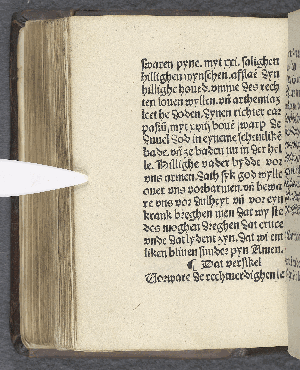 swaren pyne. myt xxi. salighen
hillighen mynschen. afslae dyn
hillighe houed. vmme des rech
ten louen wyllen. vn arthemia
leet he doden. dynen richter car
pasiū. myt xviij. boue warp de
duuel dod in eyneme schentlike
bade. vn ze baden nu in der hel
le. Hillighe vader bydde vor
vns armen. dath syk god wylle
ouer vns vorbarmen. vn bewa
re vns vor dulheyt. vn vor eyn
krank breghen men dat wy ste
des moghen dreghen dat cruce
vnde dat lydent zyn. dat wi ent
liken bliuen sunder pyn Amen.
¶ Dat versikel
Vorware de rechtuerdighen